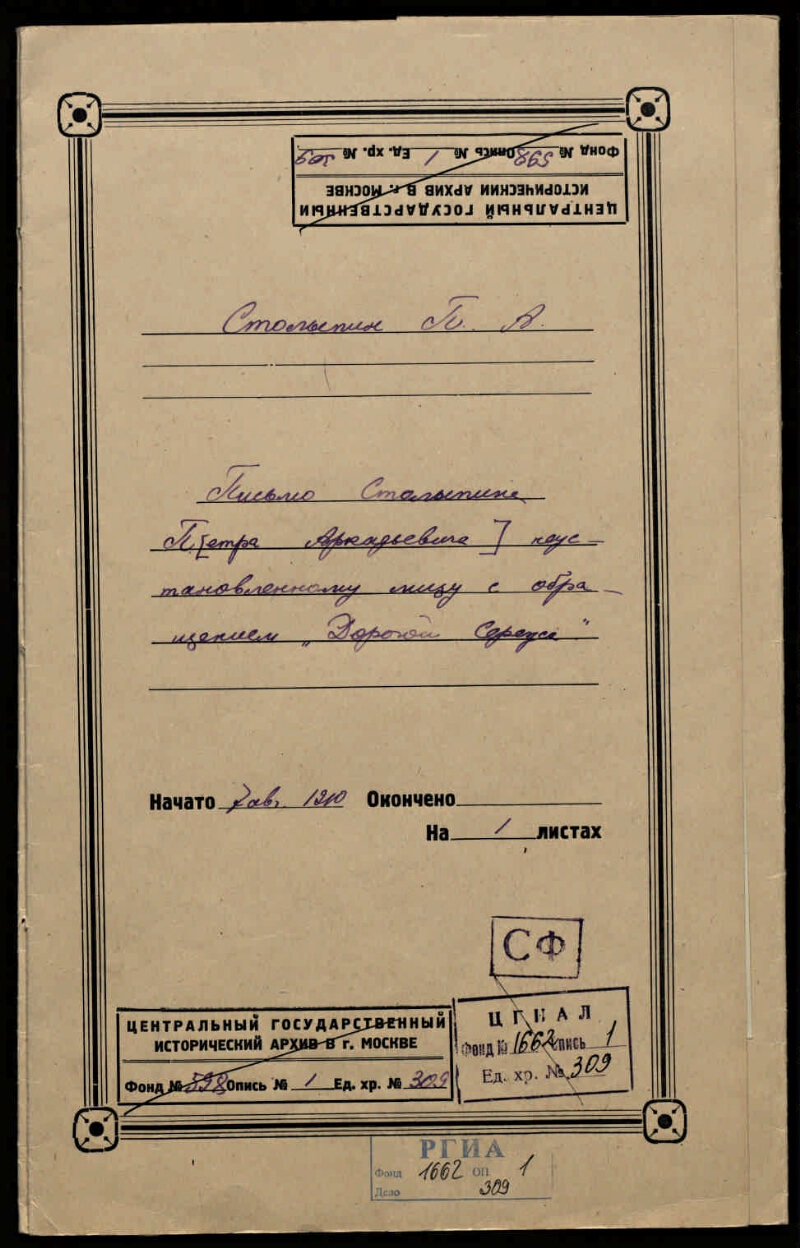 ЦЕНТРАЛЬНЫЙ ГОСУДАРСТВЕННЫЙ
ИСТОРИЧЕСКИЙ АРХИВ В г. МОСКВЕ
Фонд № 598 Опись № 1 Ед. хр. № 309
Столыпин П. А.
Письмо Столыпина
П[етра Аркадьевича] неус-
тановленному лицу с обра-
щением "Дорогой Сережа"
Начато 7 авг. 1910 Окончено
На 1 листах
СФ
ЦЕНТРАЛЬНЫЙ ГОСУДАРСТВЕННЫЙ
ИСТОРИЧЕСКИЙ АРХИВ В г. МОСКВЕ
Фонд № 598 Опись № 1 Ед. хр. № 309
ЦГИАЛ
Фонд № 1662 опись 1
Ед. хр. № 309
РГИА
Фонд 1662 ОП 1
Дело 309